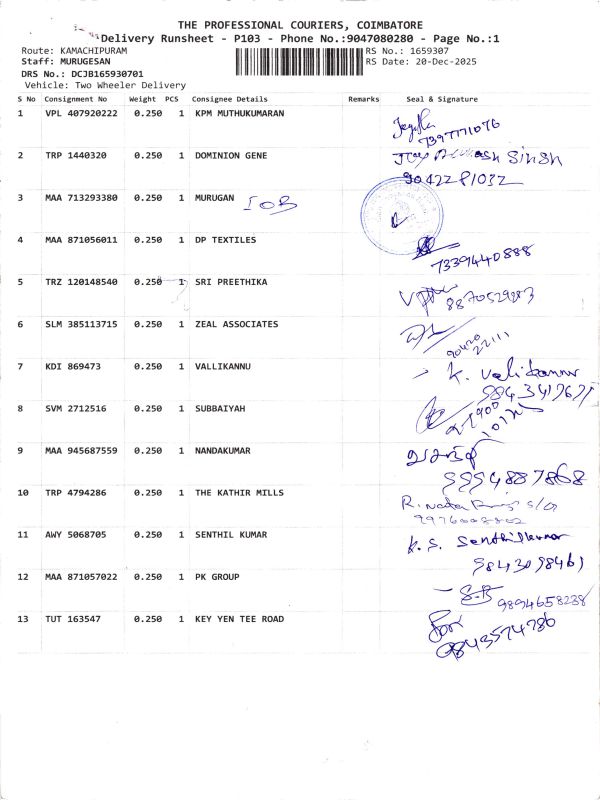 THE PROFESSIONAL COURIERS, COIMBATORE
Delivery Runsheet - P103 - Phone No.:9047080280 - Page No.:1
Route: KAMACHIPURAM
RS No.: 1659307
Staff: MURUGESAN
RS Date: 20-Dec-2025
DRS No.: DCJB165930701
Vehicle: Two Wheeler Delivery
S No Consignment No Weight PCS Consignee Details Remarks Seal & Signature
1 VPL 407920222 0.250 1 KPM MUTHUKUMARAN
7397771076
2 TRP 1440320 0.250 1 DOMINION GENE Singh
3 MAA 713293380 0.250 1 MURUGAN IOB
4 MAA 871056011 0.250 1 DP TEXTILES
7339440888
5 TRZ 120148540 0.250 1 SRI PREETHIKA
8870529283
6 SLM 385113715 0.250 1 ZEAL ASSOCIATES
90420
22111
7 KDI 869473 0.250 1 VALLIKANNU K. Vallikannu
8 SVM 2712516 0.250 1 SUBBAIYAH
9 MAA 945687559 0.250 1 NANDAKUMAR
9994887868
10 TRP 4794286 0.250 1 THE KATHIR MILLS
11 AWY 5068705 0.250 1 SENTHIL KUMAR K. S. Senthilkumar
9843098461
12 MAA 871057022 0.250 1 PK GROUP
9894658238
13 TUT 163547 0.250 1 KEY YEN TEE ROAD
9843574786